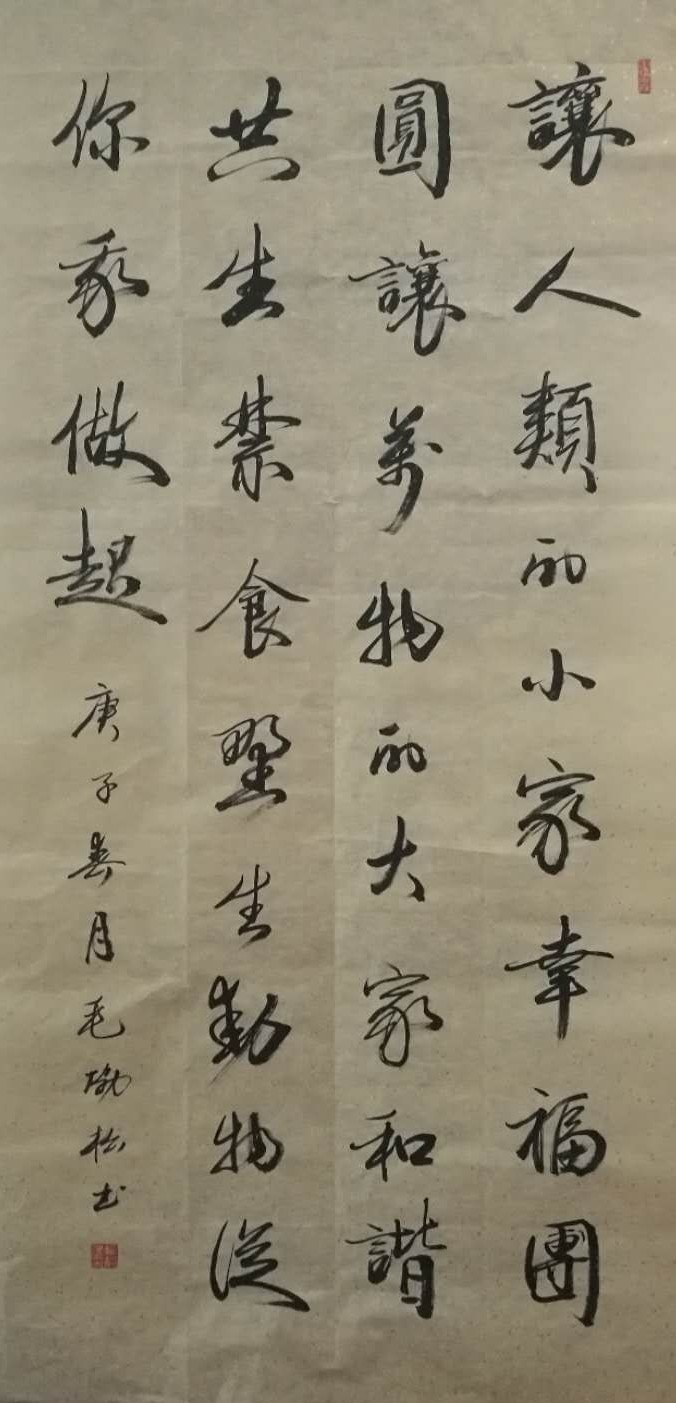 讓人類的小家幸福團
圓讓萬物的大家和諧
共生禁食野生動物從
你我做起
庚子春月毛松書